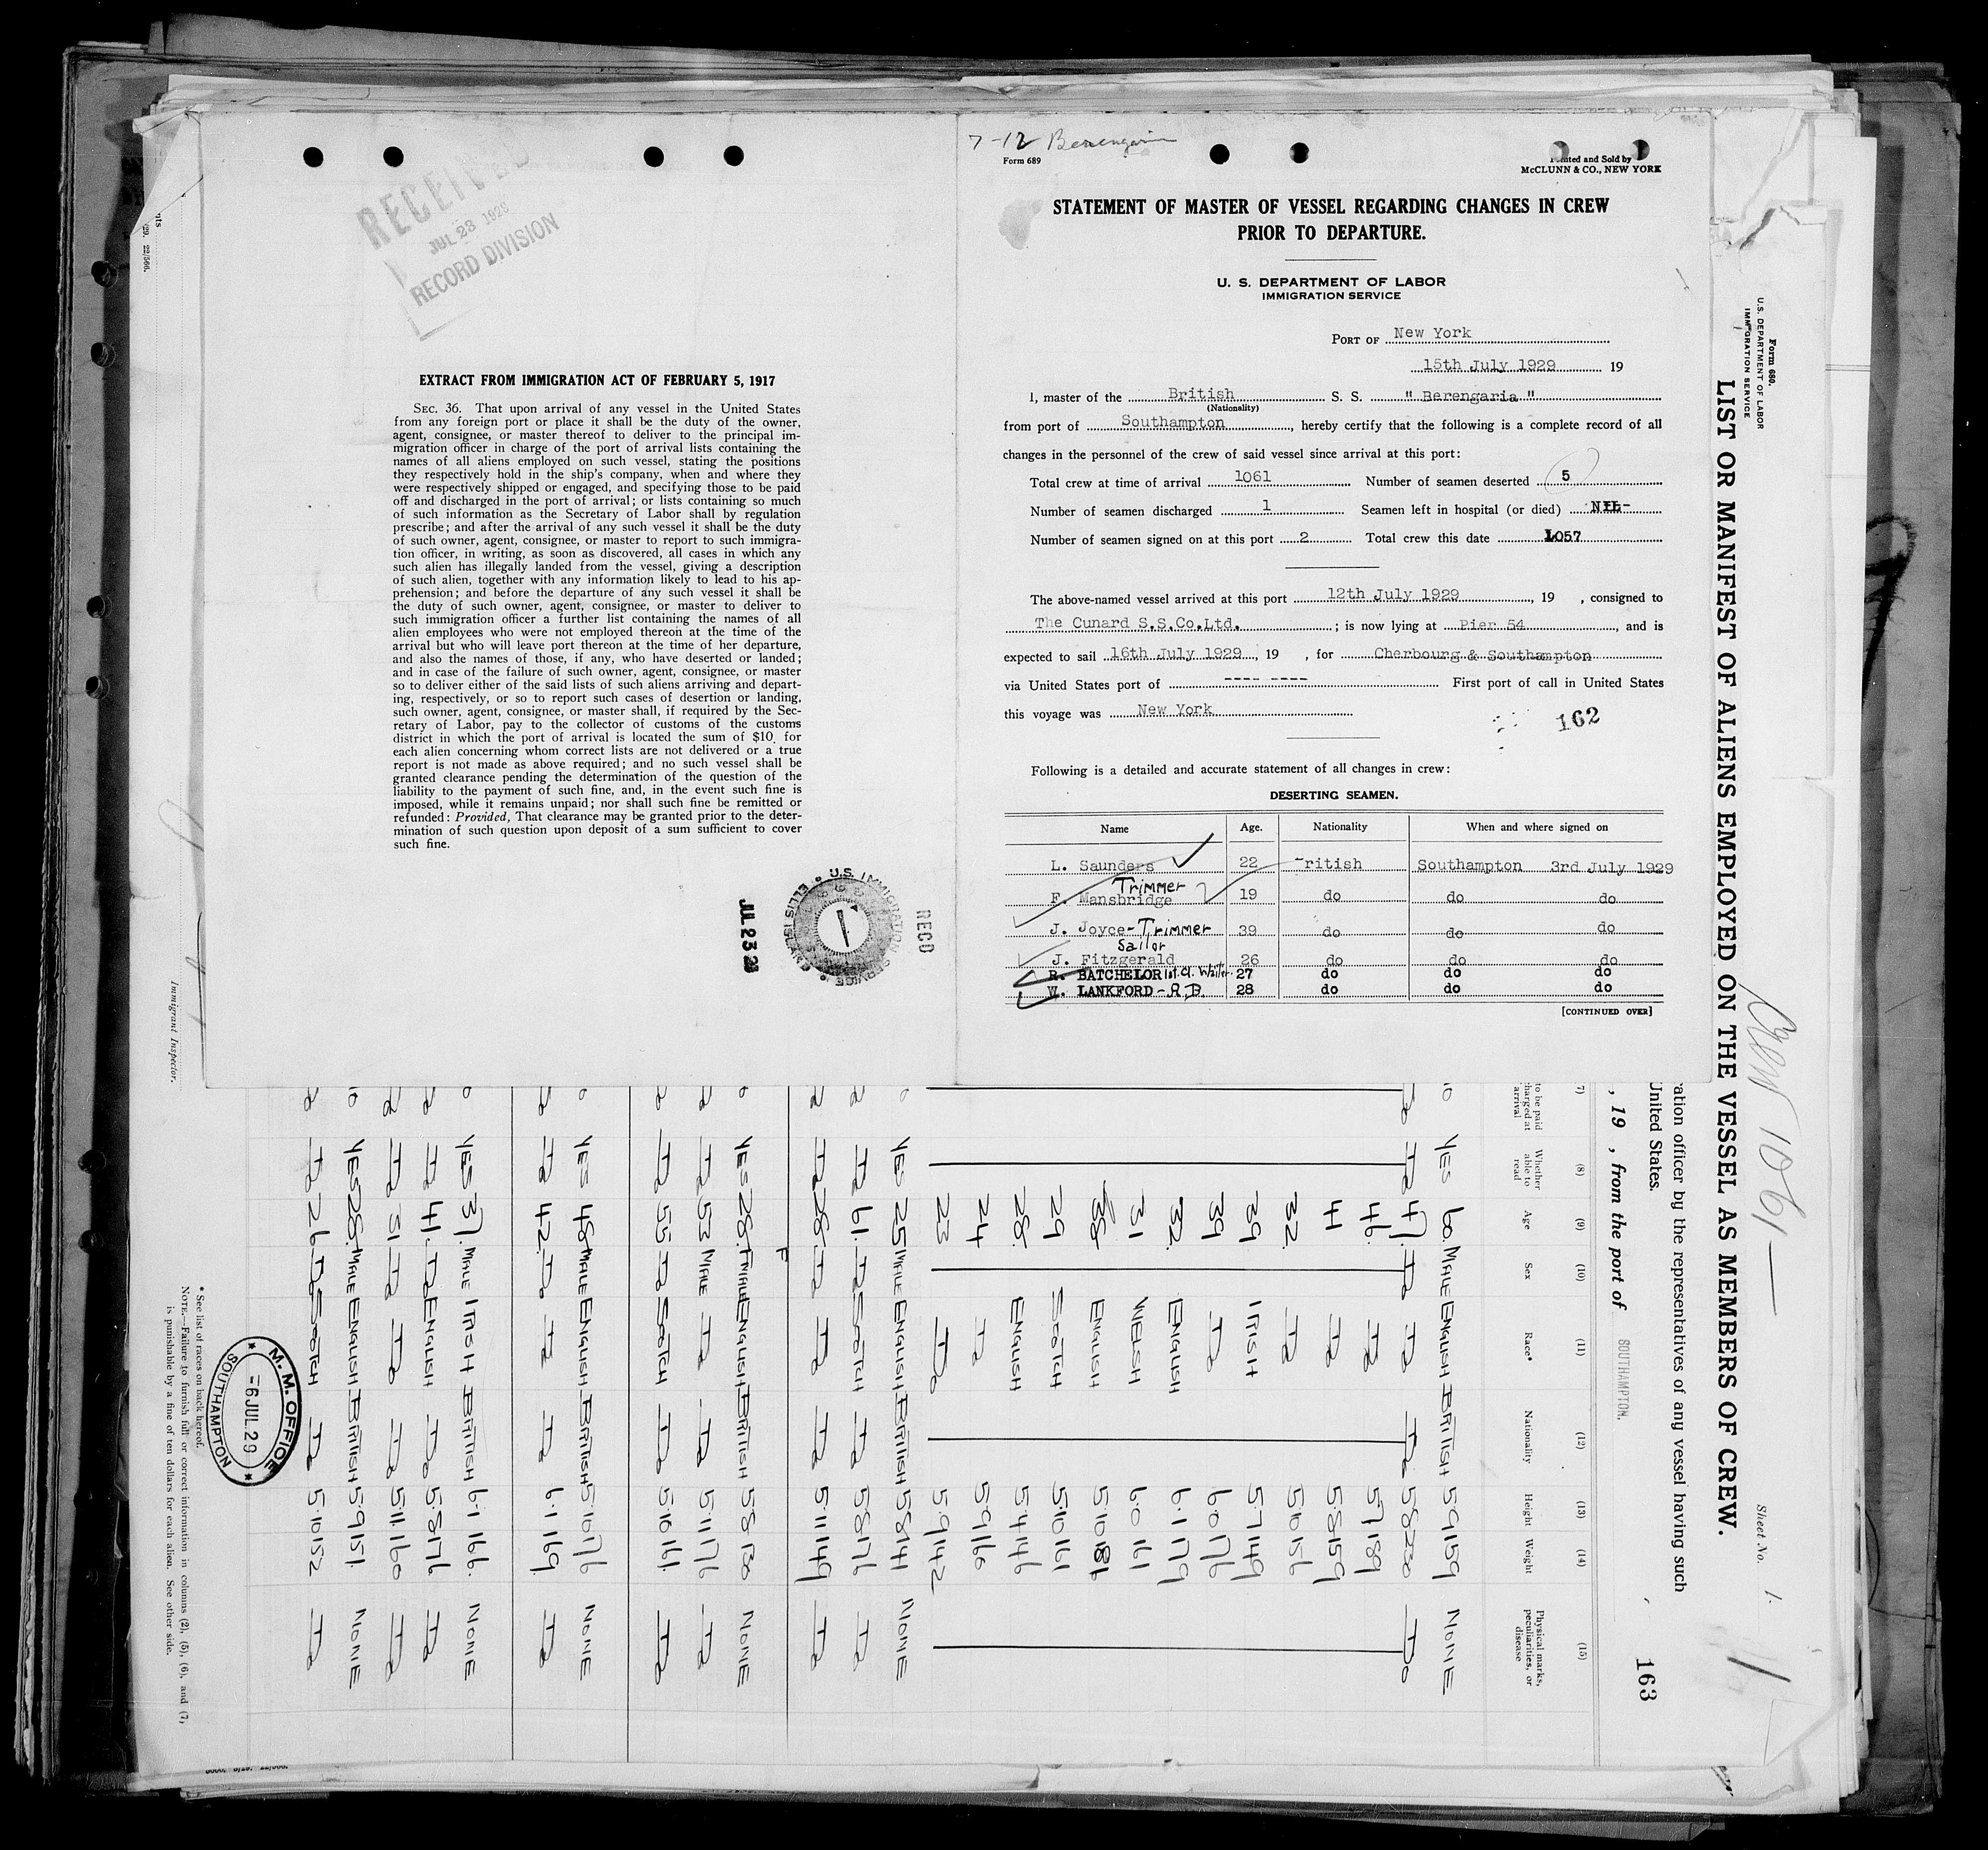 RECEIVED
JUL 23 1929
RECORD DIVISION
EXTRACT FROM IMMIGRATION ACT OF FEBRUARY 5, 1917
SEC. 36. That upon arrival of any vessel in the United States
from any foreign port or place it shall be the duty of the owner,
agent, consignee, or master thereof to deliver to the principal im-
migration officer in charge of the port of arrival lists containing the
names of all aliens employed on such vessel, stating the positions
they respectively hold in the ship's company, when and where they
were respectively shipped or engaged, and specifying those to be paid
off and discharged in the port of arrival; or lists containing so much
of such information as the Secretary of Labor shall by regulation
prescribe; and after the arrival of any such vessel it shall be the duty
of such owner, agent, consignee, or master to report to such immigra-
tion officer, in writing, as soon as discovered, all cases in which any
such alien has illegally landed from the vessel, giving a description
of such alien, together with any information likely to lead to his ap-
prehension; and before the departure of any such vessel it shall be
the duty of such owner, agent, consignee, or master to deliver to
such immigration officer a further list containing the names of all
alien employees who were not employed thereon at the time of the
arrival but who will leave port thereon at the time of her departure,
and also the names of those, if any, who have deserted or landed;
and in case of the failure of such owner, agent, consignee, or master
so to deliver either of the said lists of such aliens arriving and depart-
ing, respectively, or so to report such cases of desertion or landing,
such owner, agent, consignee, or master shall, if required by the Sec-
retary of Labor, pay to the collector of customs of the customs
district in which the port of arrival is located the sum of $10 for
each alien concerning whom correct lists are not delivered or a true
report is not made as above required; and no such vessel shall be
granted clearance pending the determination of the question of the
liability to the payment of such fine, and, in the event such fine is
imposed, while it remains unpaid; nor shall such fine be remitted or
refunded: Provided, That clearance may be granted prior to the deter-
mination of such question upon deposit of a sum sufficient to cover
such fine.
JUL 23 29
U.S. IMMIGRATION SERVICE
ELLIS ISLAND
RECD
7-12 Berengaria
Form 689
Printed and Sold by
McCLUNN & CO., NEW YORK
STATEMENT OF MASTER OF VESSEL REGARDING CHANGES IN CREW
PRIOR TO DEPARTURE.
U. S. DEPARTMENT OF LABOR
IMMIGRATION SERVICE
PORT OF New York
15th July 1929 19
I, master of the British S. S. " Berengaria "
(Nationality)
from port of Southampton, hereby certify that the following is a complete record of all
changes in the personnel of the crew of said vessel since arrival at this port:
Total crew at time of arrival 1061 Number of seamen deserted 5
Number of seamen discharged 1 Seamen left in hospital (or died) NIL-
Number of seamen signed on at this port 2 Total crew this date 1057
The above-named vessel arrived at this port 12th July 1929, 19 , consigned to
The Cunard S.S.Co.Ltd. ; is now lying at Pier 54, and is
expected to sail 16th July 1929, 19 , for Cherbourg & Southampton
via United States port of ---- ---- First port of call in United States
this voyage was New York
162
Following is a detailed and accurate statement of all changes in crew:
DESERTING SEAMEN.
Name Age. Nationality When and where signed on
L. Saunders 22 British Southampton 3rd July 1929
Trimmer
F. Mansbridge 19 do do do
J. Joyce-Trimmer 39 do do do
Sailor
J. Fitzgerald 26 do do do
R. BATCHELOR 1st.Cl. Waiter 27 do do do
W. LANKFORD-A.B. 28 do do do
[CONTINUED OVER]
Form 680.
U.S. DEPARTMENT OF LABOR
IMMIGRATION SERVICE
LIST OR MANIFEST OF ALIENS EMPLOYED ON THE VESSEL AS MEMBERS OF CREW.
Crew 1061
Sheet No. 1.
163
ation officer by the representatives of any vessel having such
United States.
, 19 , from the port of SOUTHAMPTON.
(7) (8) (9) (10) (11) (12) (13) (14) (15)
to be paid
charged at
arrival
Whether
able to
read
Age
Sex
Race*
Nationality
Height
Weight
Physical marks,
peculiarities, or
disease
YES 60. MALE ENGLISH BRITISH 5.9 159 NONE
Do 47. Do Do Do 5.8 220 Do
46. Do 5.7 189
41 Do 5.8 159
32. Do 5.10 156
39 IRISH 5.7 149
39 Do 6.0 176
32. ENGLISH 6.1 179
31 WELSH 6.0 161
38 ENGLISH 5.10 181
29 SCOTCH 5.10 161
28. ENGLISH 5.4 146
24 Do 5.9 166
23 Do 5.9 142
YES 25 MALE ENGLISH BRITISH 5.8 141 NONE
Do 61. Do SCOTCH Do 5.8 176 Do
Do 28 Do Do Do 5.11 149 Do
F
YES 28. ENGLISH BRITISH 5.8 130 NONE
Do 53 MALE Do Do 5.11 176 Do
Do 55 Do SCOTCH Do 5.10 161. Do
YES 48 MALE ENGLISH BRITISH 5.10 176 NONE
Do 42. Do Do Do 6.1 169. Do
YES 37. MALE IRISH BRITISH 6.1 166. NONE
Do 41. Do ENGLISH Do 5.8 176 Do
Do 31 Do Do Do 5.11 160 Do
YES 28. MALE ENGLISH BRITISH 5.9 151. NONE
Do 26 Do SCOTCH Do 5.10 152 Do
* See list of races on back hereof.
NOTE.—Failure to furnish full or correct information in columns (2), (5), (6), and (7),
is punishable by a fine of ten dollars for each alien. See other side.
M. M. OFFICE
6 JUL. 29
SOUTHAMPTON
Immigrant Inspector.
29. 22/566.